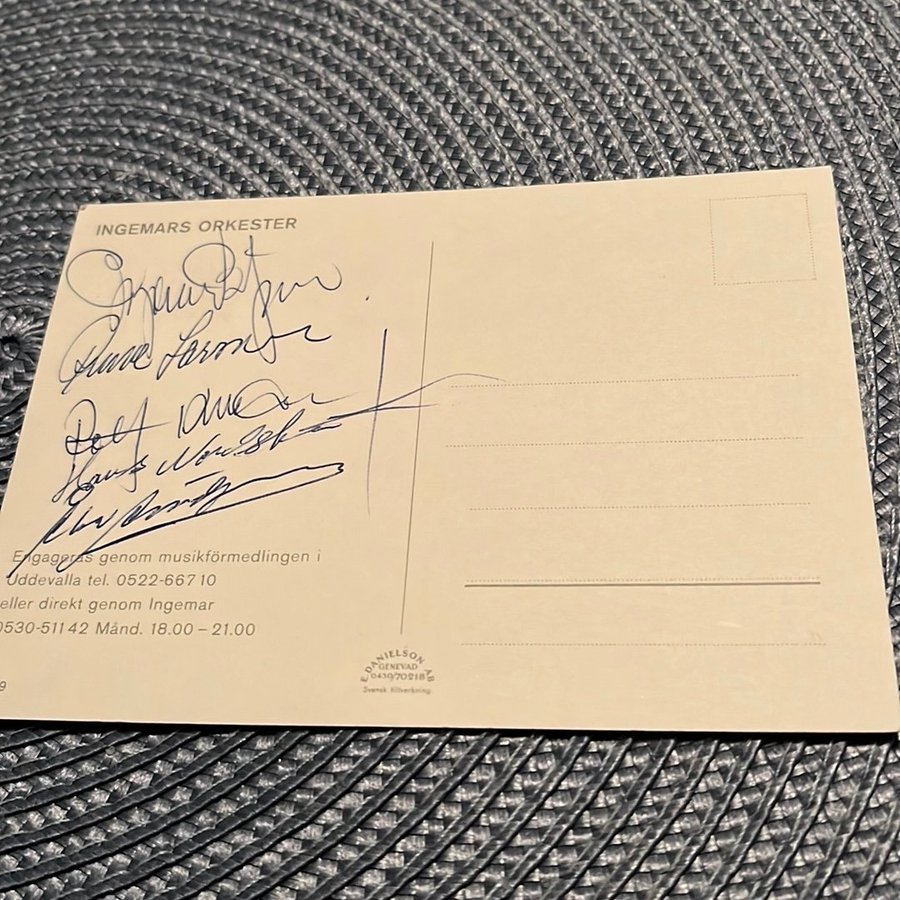 INGEMARS ORKESTER
Rune Larsson
Rolf
Hans
Engageras genom musikförmedlingen i
Uddevalla tel. 0522-667 10
eller direkt genom Ingemar
0530-511 42 Månd. 18.00 – 21.00
9
E. DANIELSON AB
GENEVAD
0430/70218
Svensk tillverkning.